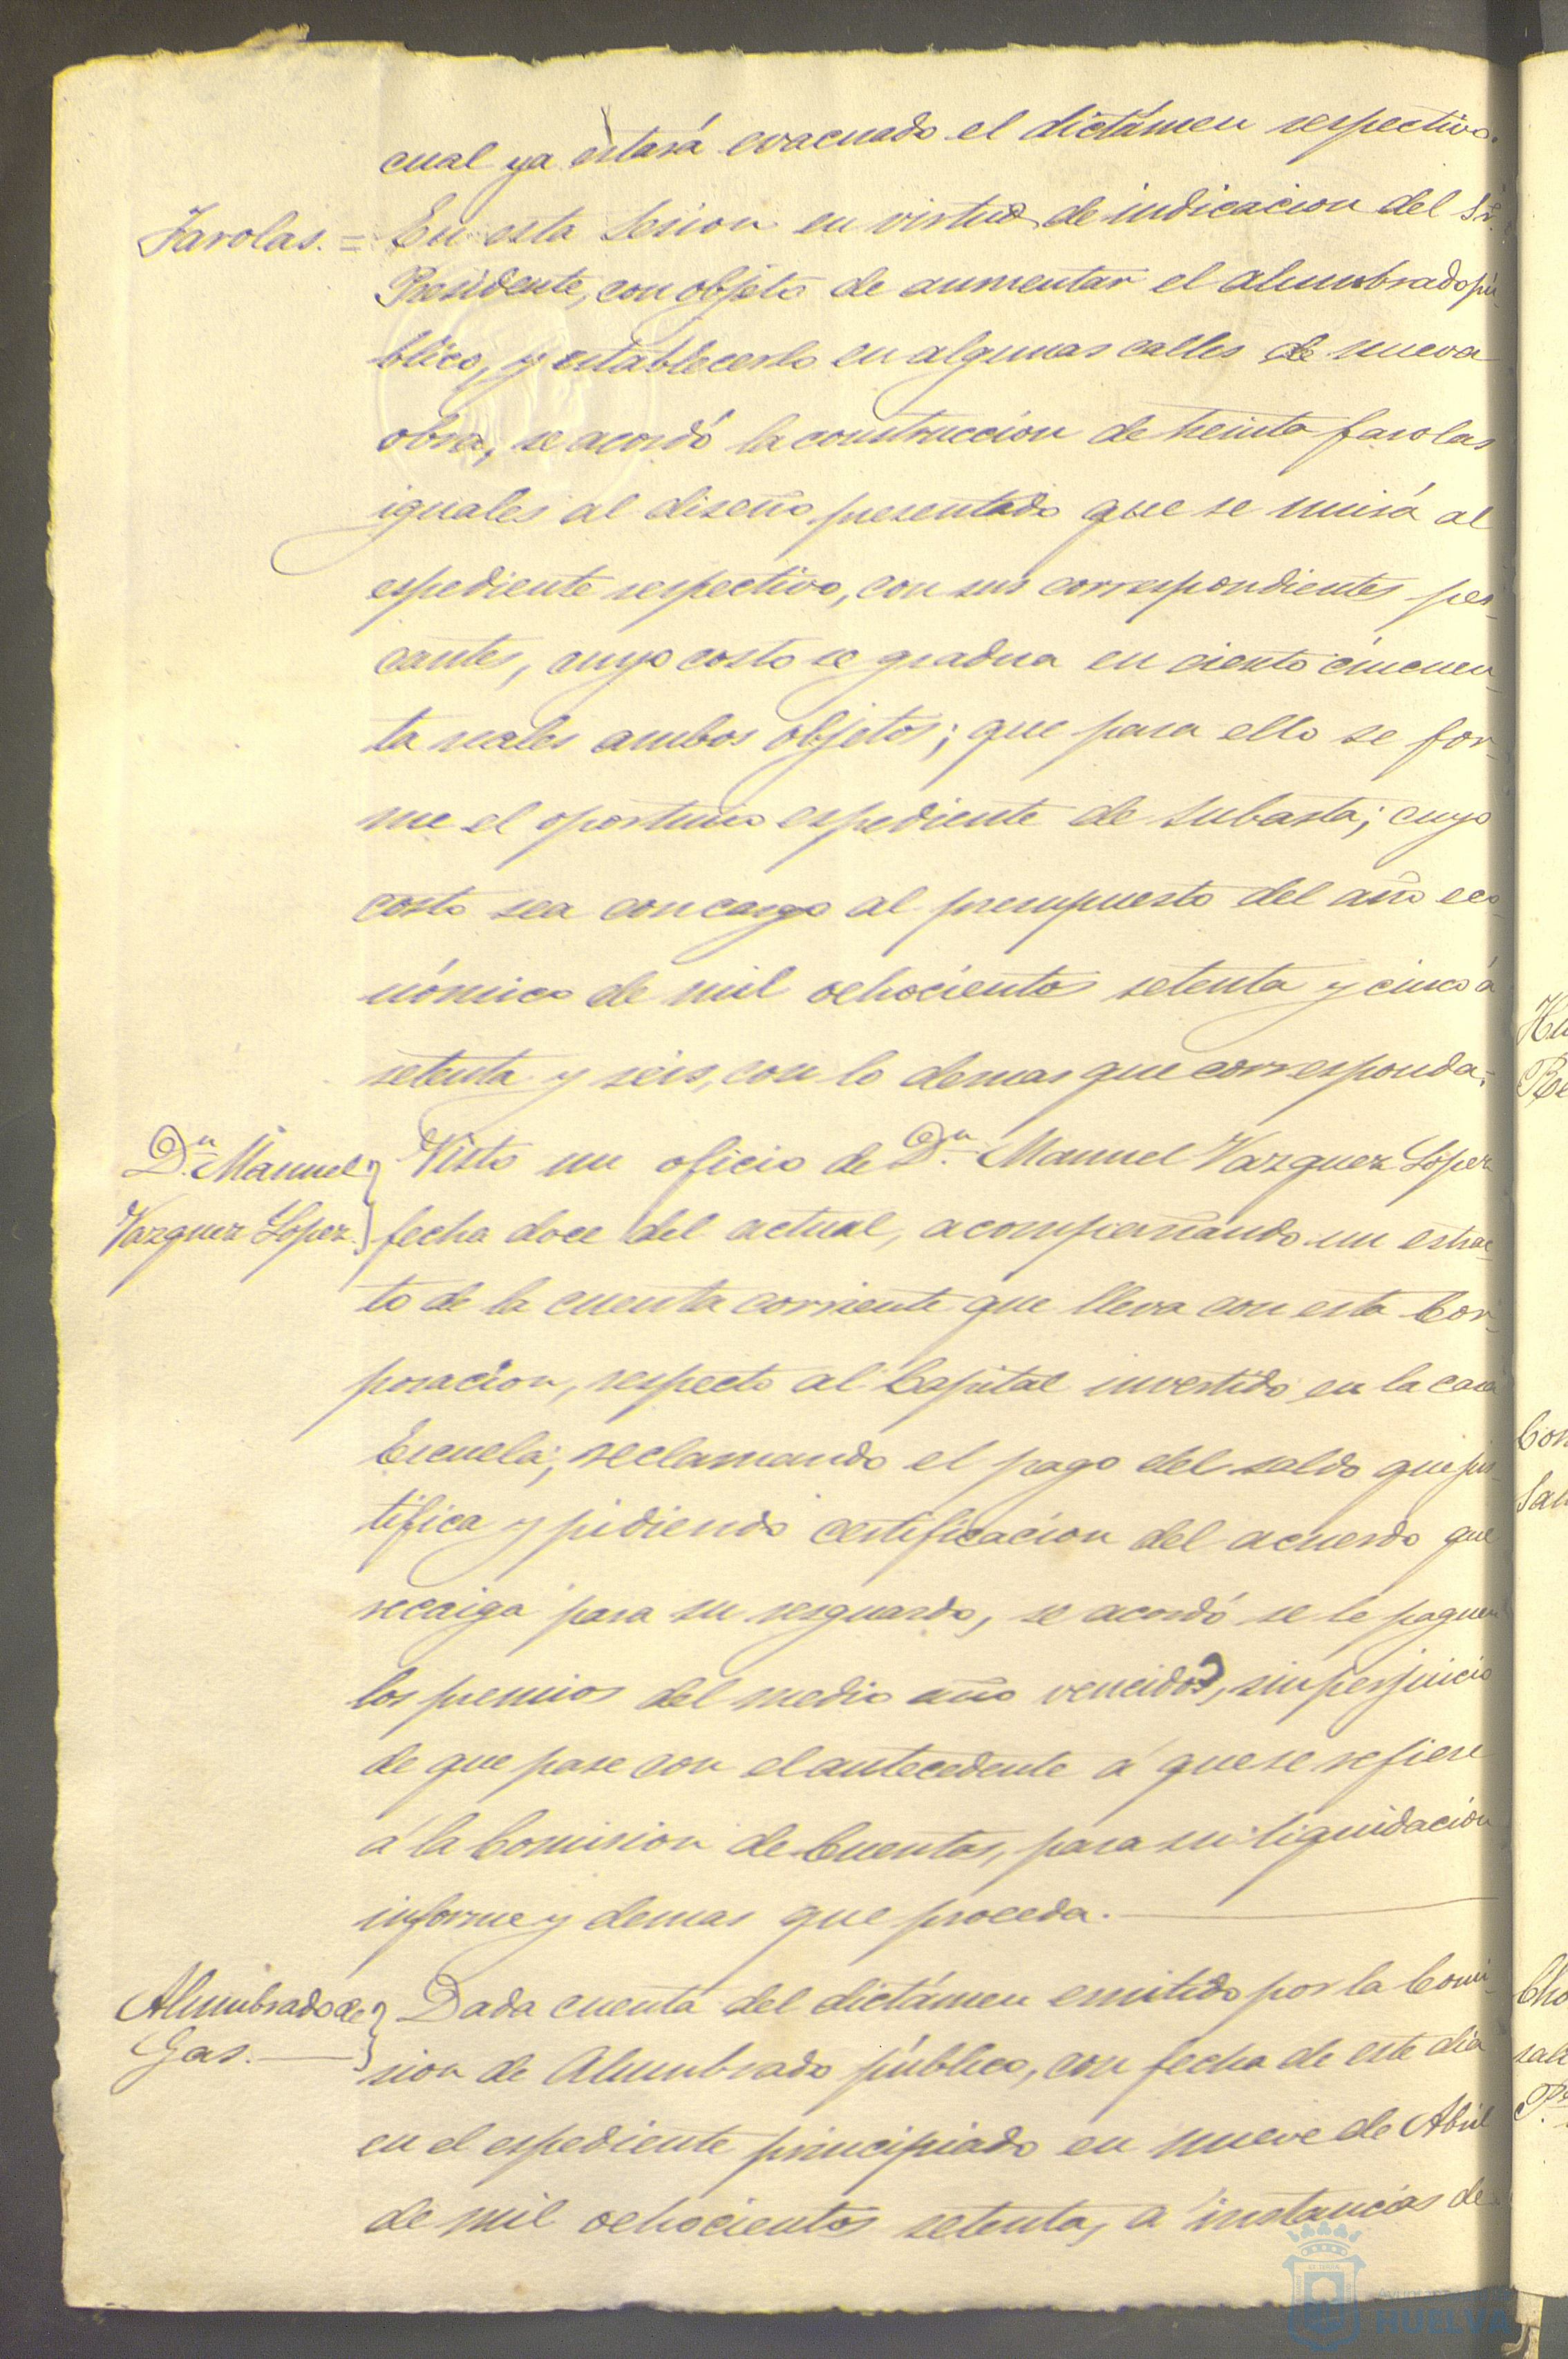 cual ya estará evacuado el dictámen respectivo.
Farolas. = En esta Sesion en virtud de indicacion del Sr.
Presidente, con objeto de aumentar el alumbrado pú-
blico, y establecerlo en algunas calles de nueva
obra, se acordó la construccion de treinta farolas
iguales al diseño presentado que se unirá al
espediente respectivo, con sus correspondientes pes-
cantes, cuyo costo se gradua en ciento cincuen-
ta reales ambos objetos; que para ello se for-
me el oportuno espediente de subasta; cuyo
costo sea con cargo al presupuesto del año eco-
nómico de mil ochocientos setenta y cinco á
setenta y seis, con lo demas que corresponda.
Dn. Manuel Vazquez Lopez.
Visto un oficio de Dn. Manuel Vazquez Lopez
fecha doce del actual, acompañando un estrac-
to de la cuenta corriente que lleva con esta Cor-
poracion, respecto al Capital invertido en la casa
Escuela; reclamando el pago del saldo que jus-
tifica y pidiendo certificacion del acuerdo que
recaiga para su resguardo, se acordó se le paguen
los premios del medio año vencido, sin perjuicio
de que pase con el antecedente á que se refiere
á la Comision de Cuentas, para su liquidacion
informe y demas que proceda.
Alumbrado de Gas.
Dada cuenta del dictámen emitido por la Comi-
sion de Alumbrado público, con fecha de este dia
en el espediente principiado en nueve de Abril
de mil ochocientos setenta, á instancias de
HUELVA